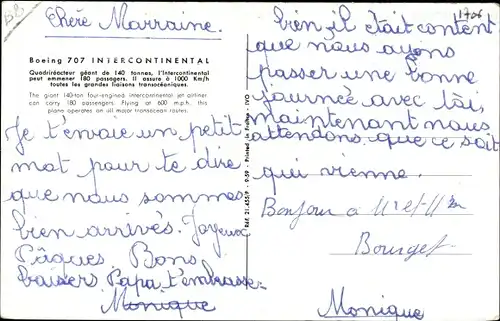 Chère Marraine.
Boeing 707 INTERCONTINENTAL
Quadriréacteur géant de 140 tonnes, l'Intercontinental
peut emmener 180 passagers. Il assure à 1000 Km/h
toutes les grandes liaisons transocéaniques.
The giant 140-ton four-engined intercontinental jet airliner
can carry 180 passengers. Flying at 600 m.p.h. this
plane operates on all major transocean routes.
Je t'envoie un petit
mot pour te dire
que nous sommes
bien arrivés. Joyeuses
Pâques. Bons
baisers. Papa t'embrasse.
Monique
Réf. 21.455/P - 9-59 - Printed in France - IVO
1706
bien, il était content
que nous ayons
passer une bonne
journée avec lui,
maintenant nous
attendons que ce soit
qui vienne.
Bonjour à
Bourget
Monique